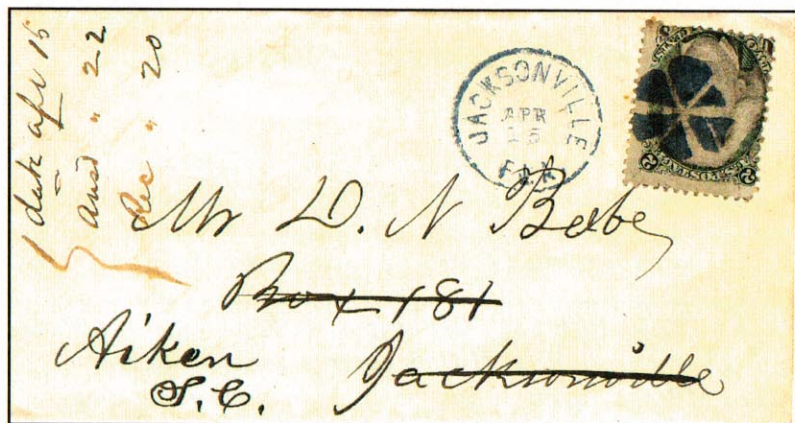 date apr 15
Ansd " 22
Rec " 20
JACKSONVILLE
APR
15
FLA
Mr D. N Beebe
Box 181
Aiken Jacksonville
S.C.